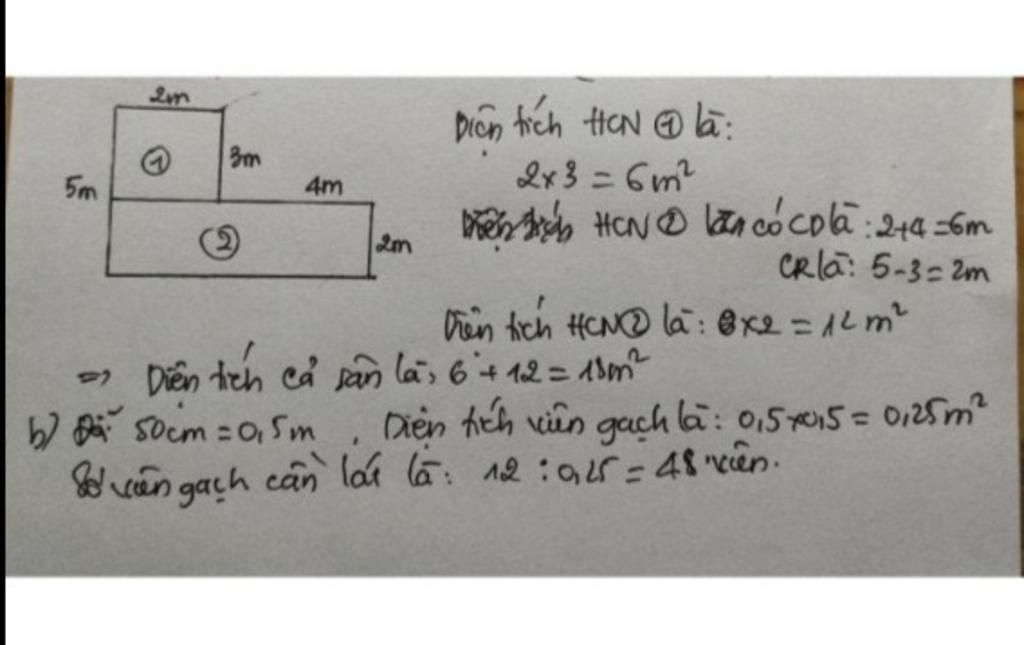 2m
Diện tích HCN ① là:
① 3m
2x3 = 6m²
5m 4m
HCN ② có CD là: 2+4=6m
② 2m
CR là: 5-3=2m
Diện tích HCN② là: 6x2 = 12m²
=> Diện tích cả sân là, 6 + 12 = 18m²
b) 50cm = 0,5m, Diện tích viên gạch là: 0,5x0,5 = 0,25m²
Số viên gạch cần lát là: 12 : 0,25 = 48 viên.